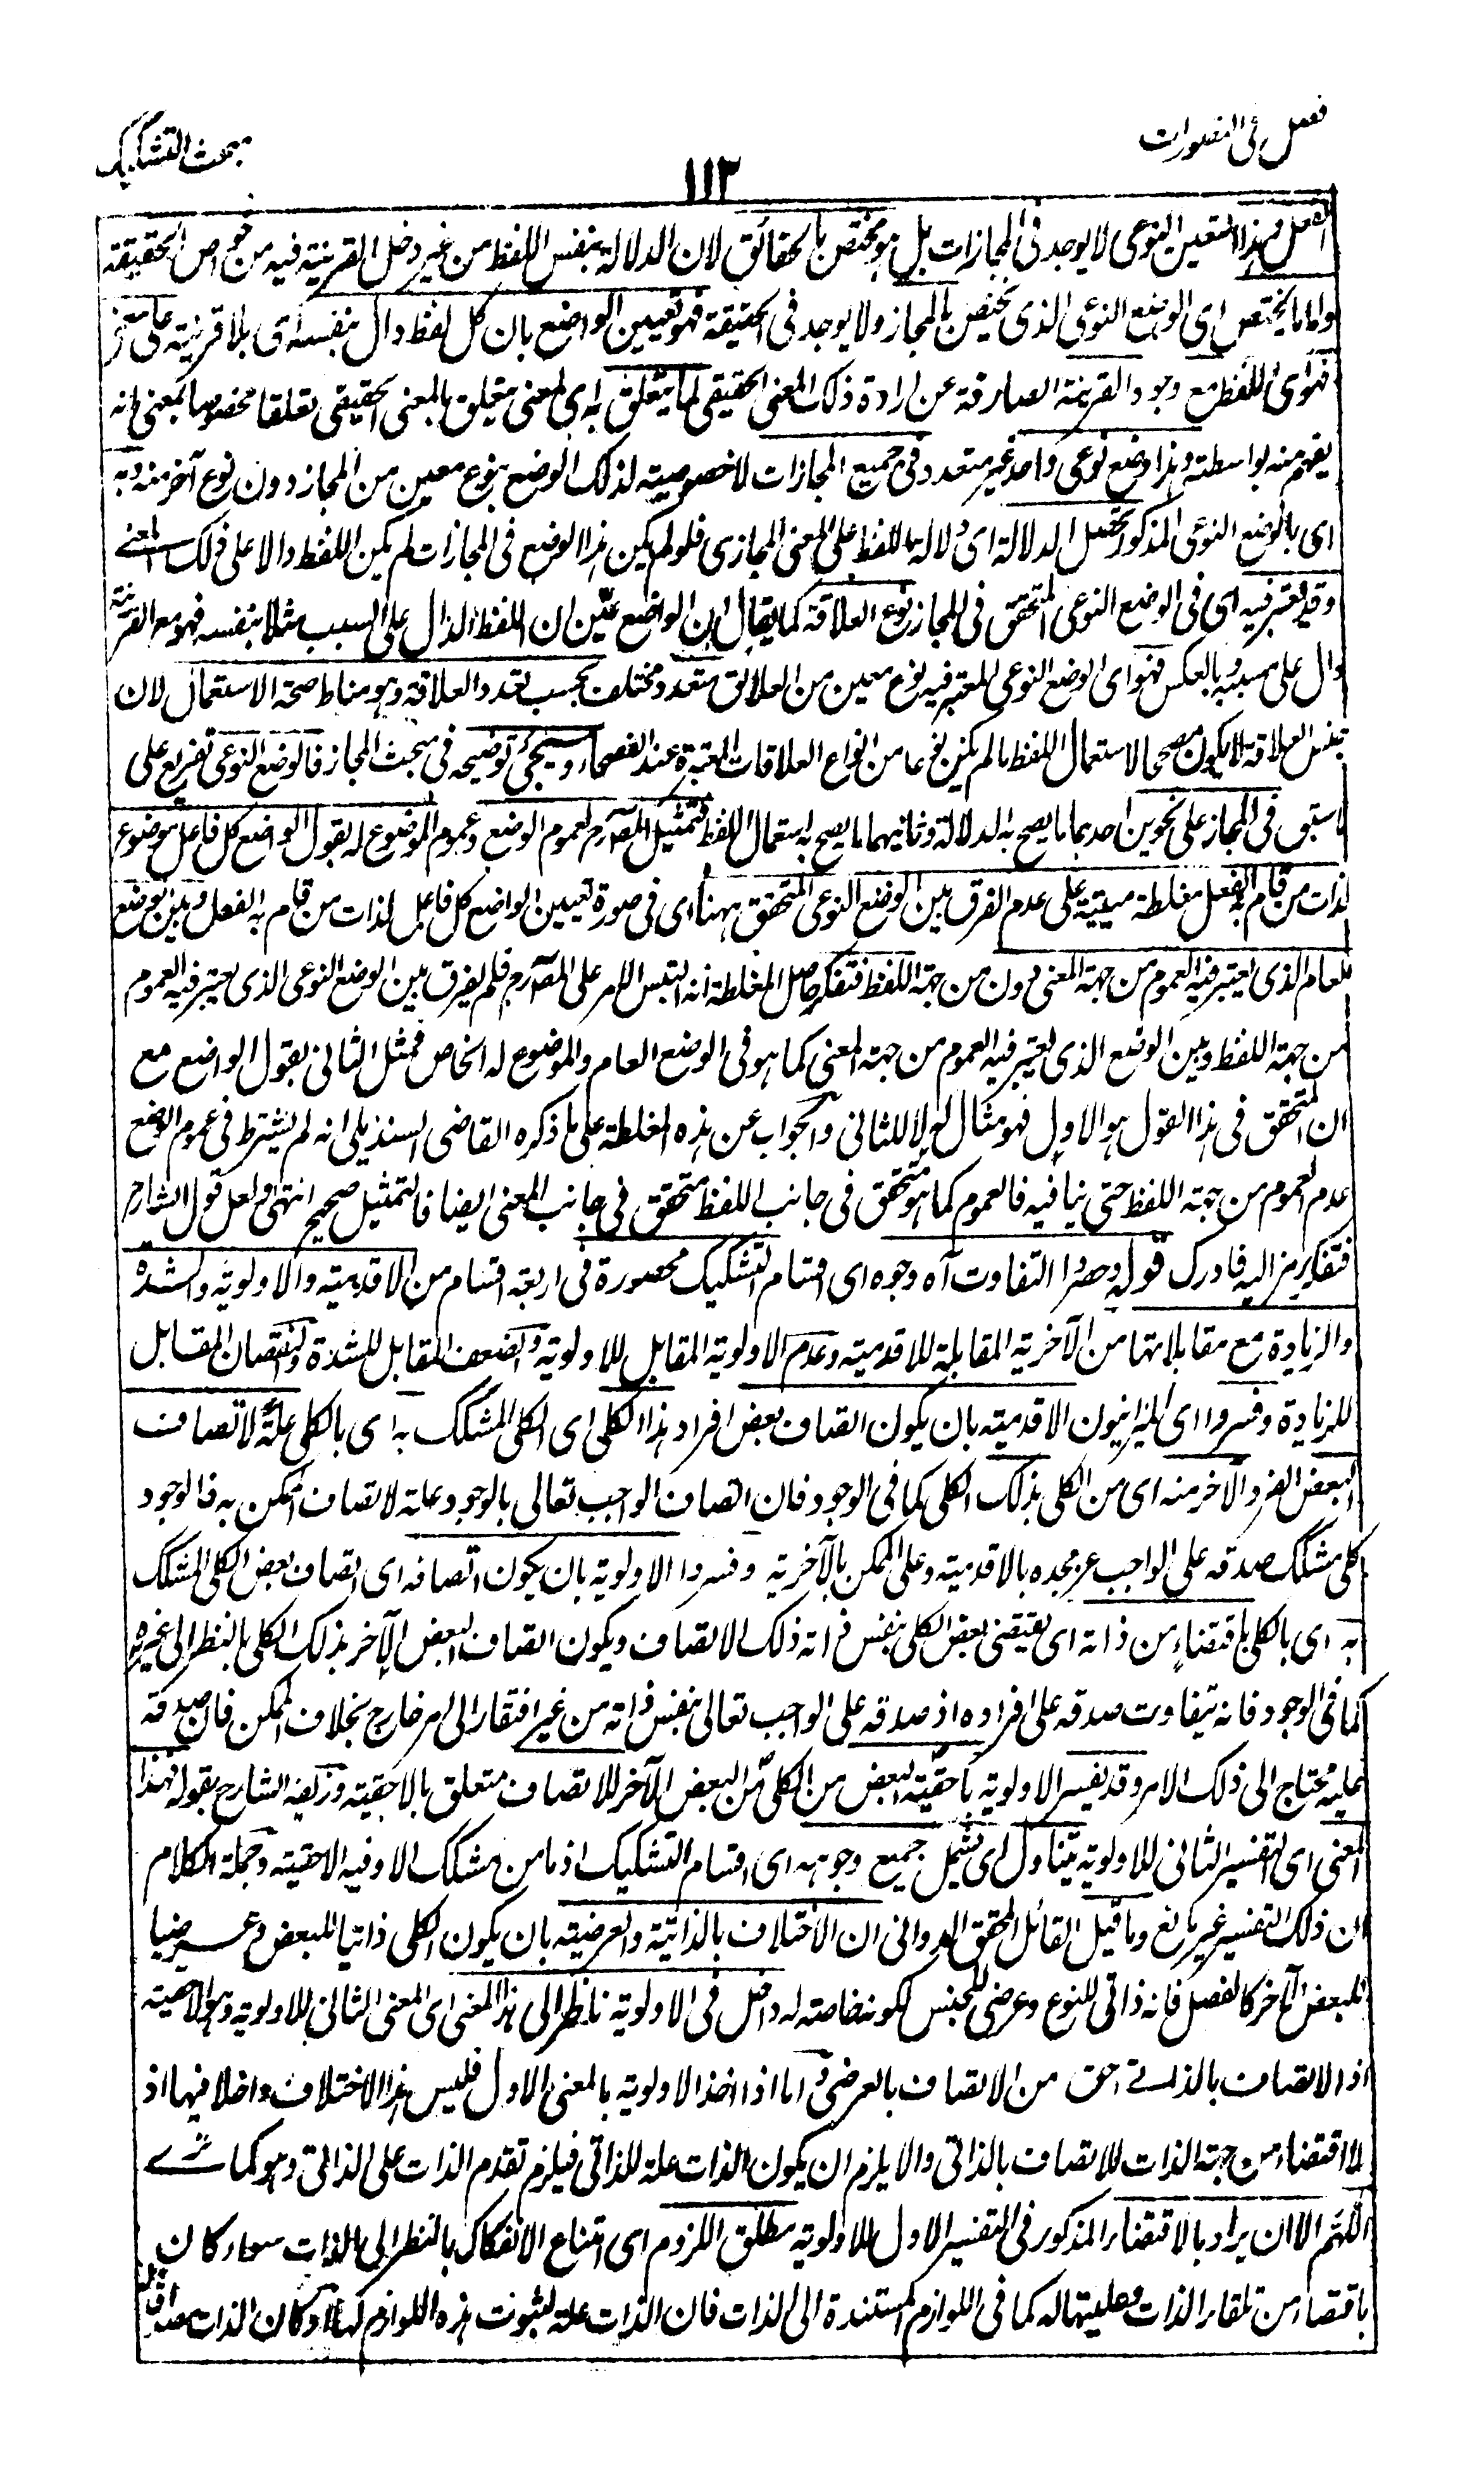 فصل فی التصورات
١١٣
مبحث التشکیک
الفعل وہذا التعیین النوعی لا یوجد فی المجازات بل ہو مختص بالحقائق لان الدلالة بنفس اللفظ من غیر دخل القرینة فیہ من خواص الحقیقة
واما ما یختص ای الوضع النوعی الذی یختص بالمجاز ولا یوجد فی الحقیقة فہو تعیین الواضع بان کل لفظ دال بنفسہ ای بلا قرینة علی معنی
فہو ای اللفظ مع وجود القرینة الصارفة عن ارادة ذلک المعنی الحقیقی لما یتعلق بہ ای لمعنی یتعلق بالمعنی الحقیقی تعلقا مخصوصا بمعنی انہ
یفہم منہ بواسطتہ وہذا وضع نوعی واحد غیر متعدد فی جمیع المجازات لا خصوصیة لذلک الوضع بنوع معین من المجاز دون نوع آخر منہ وبہ
ای بالوضع النوعی المذکور تحصل الدلالة ای دلالة اللفظ علی المعنی المجازی فلو لم یکن ہذا الوضع فی المجازات لم یکن اللفظ دالا علی ذلک المعنے
وقد یعتبر فیہ ای فی الوضع النوعی المتحقق فی المجاز نوع العلاقة کما یقال ان الواضع عیّن ان اللفظ الدال علی السبب مثلا بنفسہ فہو مع القرینة
دال علی مسببہ وبالعکس فہو ای الوضع النوعی المعتبر فیہ نوع معین من العلائق متعدد مختلف بحسب تعدد العلاقة وہو مناط صحة الاستعمال لان
جنس العلاقة لا یکون مصححا لاستعمال اللفظ ما لم یکن نوعا من انواع العلاقات المعتبرة عند الفصحاء وسیجئ توضیحہ فی مبحث المجاز فالوضع النوعی تفریع علی
ما سبق فی المجاز علی نحوین احدہما ما یصح بہ الدلالة وثانیہما ما یصح بہ استعمال اللفظ فتمثیل الصارم لعموم الوضع وعموم الموضوع لہ بقول الواضع کل فاعل موضوع
لذات من قام بہ الفعل مغلطة مبنیة علی عدم الفرق بین الوضع النوعی المتحقق ہہنا ای فی صورة تعیین الواضع کل فاعل لذات من قام بہ الفعل وبین الوضع
العام الذی یعتبر فیہ العموم من جہة المعنی دون من جہة اللفظ فتفکر حاصل المغلطة انہ التبس الامر علی الصارم فلم یفرق بین الوضع النوعی الذی یعتبر فیہ العموم
من جہة اللفظ وبین الوضع الذی یعتبر فیہ العموم من جہة المعنی کما ہو فی الوضع العام والموضوع لہ الخاص فمثل الثانی بقول الواضع مع
ان المتحقق فی ہذا القول ہو الاول فہو مثال لہ لا للثانی والجواب عن ہذہ المغلطة علی ما ذکرہ القاضی السندیلی انہ لم یشترط فی عموم الوضع
عدم العموم من جہة اللفظ حتی ینافیہ فالعموم کما ہو متحقق فی جانب اللفظ متحقق فی جانب المعنی ایضا فالتمثیل صحیح انتہی ولعل قول الشارح
فتفکر یرمز الیہ فادرک قولہ وحصروا التفاوت آہ وجوہ ای اقسام التشکیک محصورة فی اربعة اقسام من الاقدمیة والاولویة والشدة
والزیادة مع مقابلاتہا من الآخریة المقابلة للاقدمیة وعدم الاولویة المقابل للاولویة والضعف المقابل للشدة والنقصان المقابل
للزیادة وفسروا ای المیزانیون الاقدمیة بان یکون اتصاف بعض افراد ہذا الکلی ای الکلی المشکک بہ ای بالکلی علة لاتصاف
البعض الفرد الآخر منہ ای من الکلی بذلک الکلی کما فی الوجود فان اتصاف الواجب تعالی بالوجود علة لاتصاف الممکن بہ فالوجود
کلی مشکک صدقہ علی الواجب عز مجدہ بالاقدمیة وعلی الممکن بالآخریة وفسروا الاولویة بان یکون اتصافہ ای اتصاف بعض الکلی المشکک
بہ ای بالکلی باقتضاء من ذاتہ ای یقتضی بعض الکلی بنفس ذاتہ ذلک الاتصاف ویکون اتصاف البعض الآخر بذلک الکلی بالنظر الی غیرہ
کما فی الوجود فانہ یتفاوت صدقہ علی افرادہ اذ صدقہ علی الواجب تعالی بنفس ذاتہ من غیر افتقار الی امر خارج بخلاف الممکن فان صدقہ
علیہ محتاج الی ذلک الامر وقد یفسر الاولویة باحقیة البعض من الکلی من البعض الآخر للاتصاف متعلق بالاحقیة وزیفہ الشارح بقولہ فہذا
المعنی ای التفسیر الثانی للاولویة یتناول ای یشمل جمیع وجوہہ ای اقسام التشکیک اذ ما من مشکک الا وفیہ الاحقیة وجملة الکلام
ان ذلک التفسیر غیر مانع وما قیل القائل المحقق الدوانی ان الاختلاف بالذاتیة والعرضیة بان یکون الکلی ذاتیا للبعض وعرضیا
للبعض الآخر کالفصل فانہ ذاتی للنوع وعرضی للجنس لکونہ خاصة لہ داخل فی الاولویة ناظر الی ہذا المعنی ای المعنی الثانی للاولویة وہو الاحقیة
اذ الاتصاف بالذاتے احق من الاتصاف بالعرضی واما اذا اخذ الاولویة بالمعنی الاول فلیس ہذا الاختلاف داخلا فیہا اذ
لا اقتضاء من جہة الذات للاتصاف بالذاتی والا یلزم ان یکون الذات علة للذاتی فیلزم تقدم الذات علی الذاتی وہو کما ترے
اللہم الا ان یراد بالاقتضاء المذکور فی التفسیر الاول للاولویة مطلق اللزوم ای امتناع الانفکاک بالنظر الی الذات سواء کان
باقتضاء من تلقاء الذات وعلیتہا لہ کما فی اللوازم المستندة الی الذات فان الذات علة لثبوت ہذہ اللوازم لہا اولا وکان الذات مصداقا